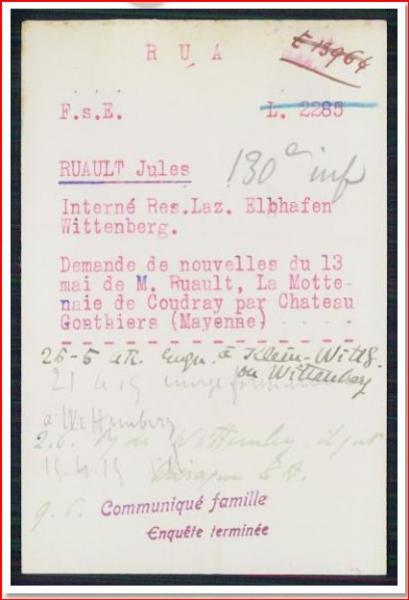 R U A
E 13964
F.s.E.
L. 2285
RUAULT Jules
130e inf
Interné Res.Laz. Elbhafen
Wittenberg.
Demande de nouvelles du 13
mai de M. Ruault, La Motte-
naie de Coudray par Chateau
Gonthiers (Mayenne)
26-5 à Klein-Wittb.
ou Wittenberg
21 4 15
à Wittemberg
2.6.
15.4.15
9.6.
Communiqué famille
Enquête terminée